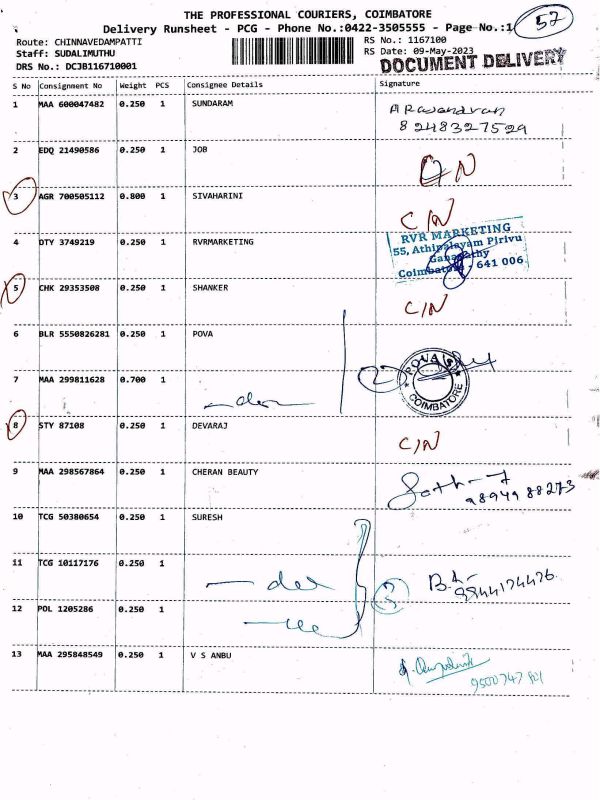 THE PROFESSIONAL COURIERS, COIMBATORE
Delivery Runsheet - PCG - Phone No.:0422-3505555 - Page No.:1
57
Route: CHINNAVEDAMPATTI
RS No.: 1167100
Staff: SUDALIMUTHU
RS Date: 09-May-2023
DRS No.: DCJB116710001
DOCUMENT DELIVERY
S No Consignment No Weight PCS Consignee Details Signature
1 MAA 600047482 0.250 1 SUNDARAM
8248327529
2 EDQ 21490586 0.250 1 JOB
3 AGR 700505112 0.800 1 SIVAHARINI C/N
4 DTY 3749219 0.250 1 RVRMARKETING
RVR MARKETING
55, Athipalayam Pirivu
Ganapathy
Coimbatore - 641 006
5 CHK 29353508 0.250 1 SHANKER C/N
6 BLR 5550826281 0.250 1 POVA
POVA
COIMBATORE
7 MAA 299811628 0.700 1
8 STY 87108 0.250 1 DEVARAJ C/N
9 MAA 298567864 0.250 1 CHERAN BEAUTY
98949 88273
10 TCG 50380654 0.250 1 SURESH
11 TCG 10117176 0.250 1
12 POL 1205286 0.250 1
13 MAA 295848549 0.250 1 V S ANBU